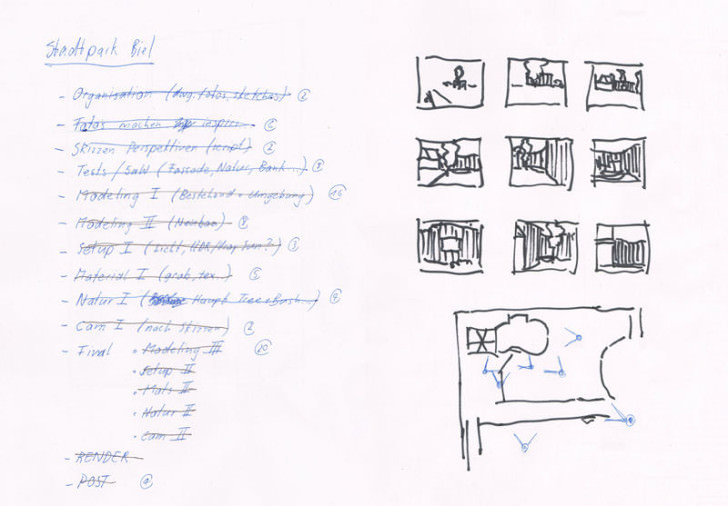 Stadtpark Biel
- Organisation (dwg, fotos, sketches) 2
- Fotos machen
- Skizzen Perspektiven (script) 2
- Tests / SaW (Fassade, Natur, Bank...)
- Modeling I (Bestehend + Umgebung) 16
- Modeling II (Neubau) 8
- Setup I (Licht, HDR/
- Material I (grob, tex...) 5
- Natur I ( Haupt Tree + Bush...)
- Cam I (nach Skizzen) 2
- Final • Modeling III 20
• Setup II
• Mats II
• Natur II
• Cam II
- RENDER
- POST